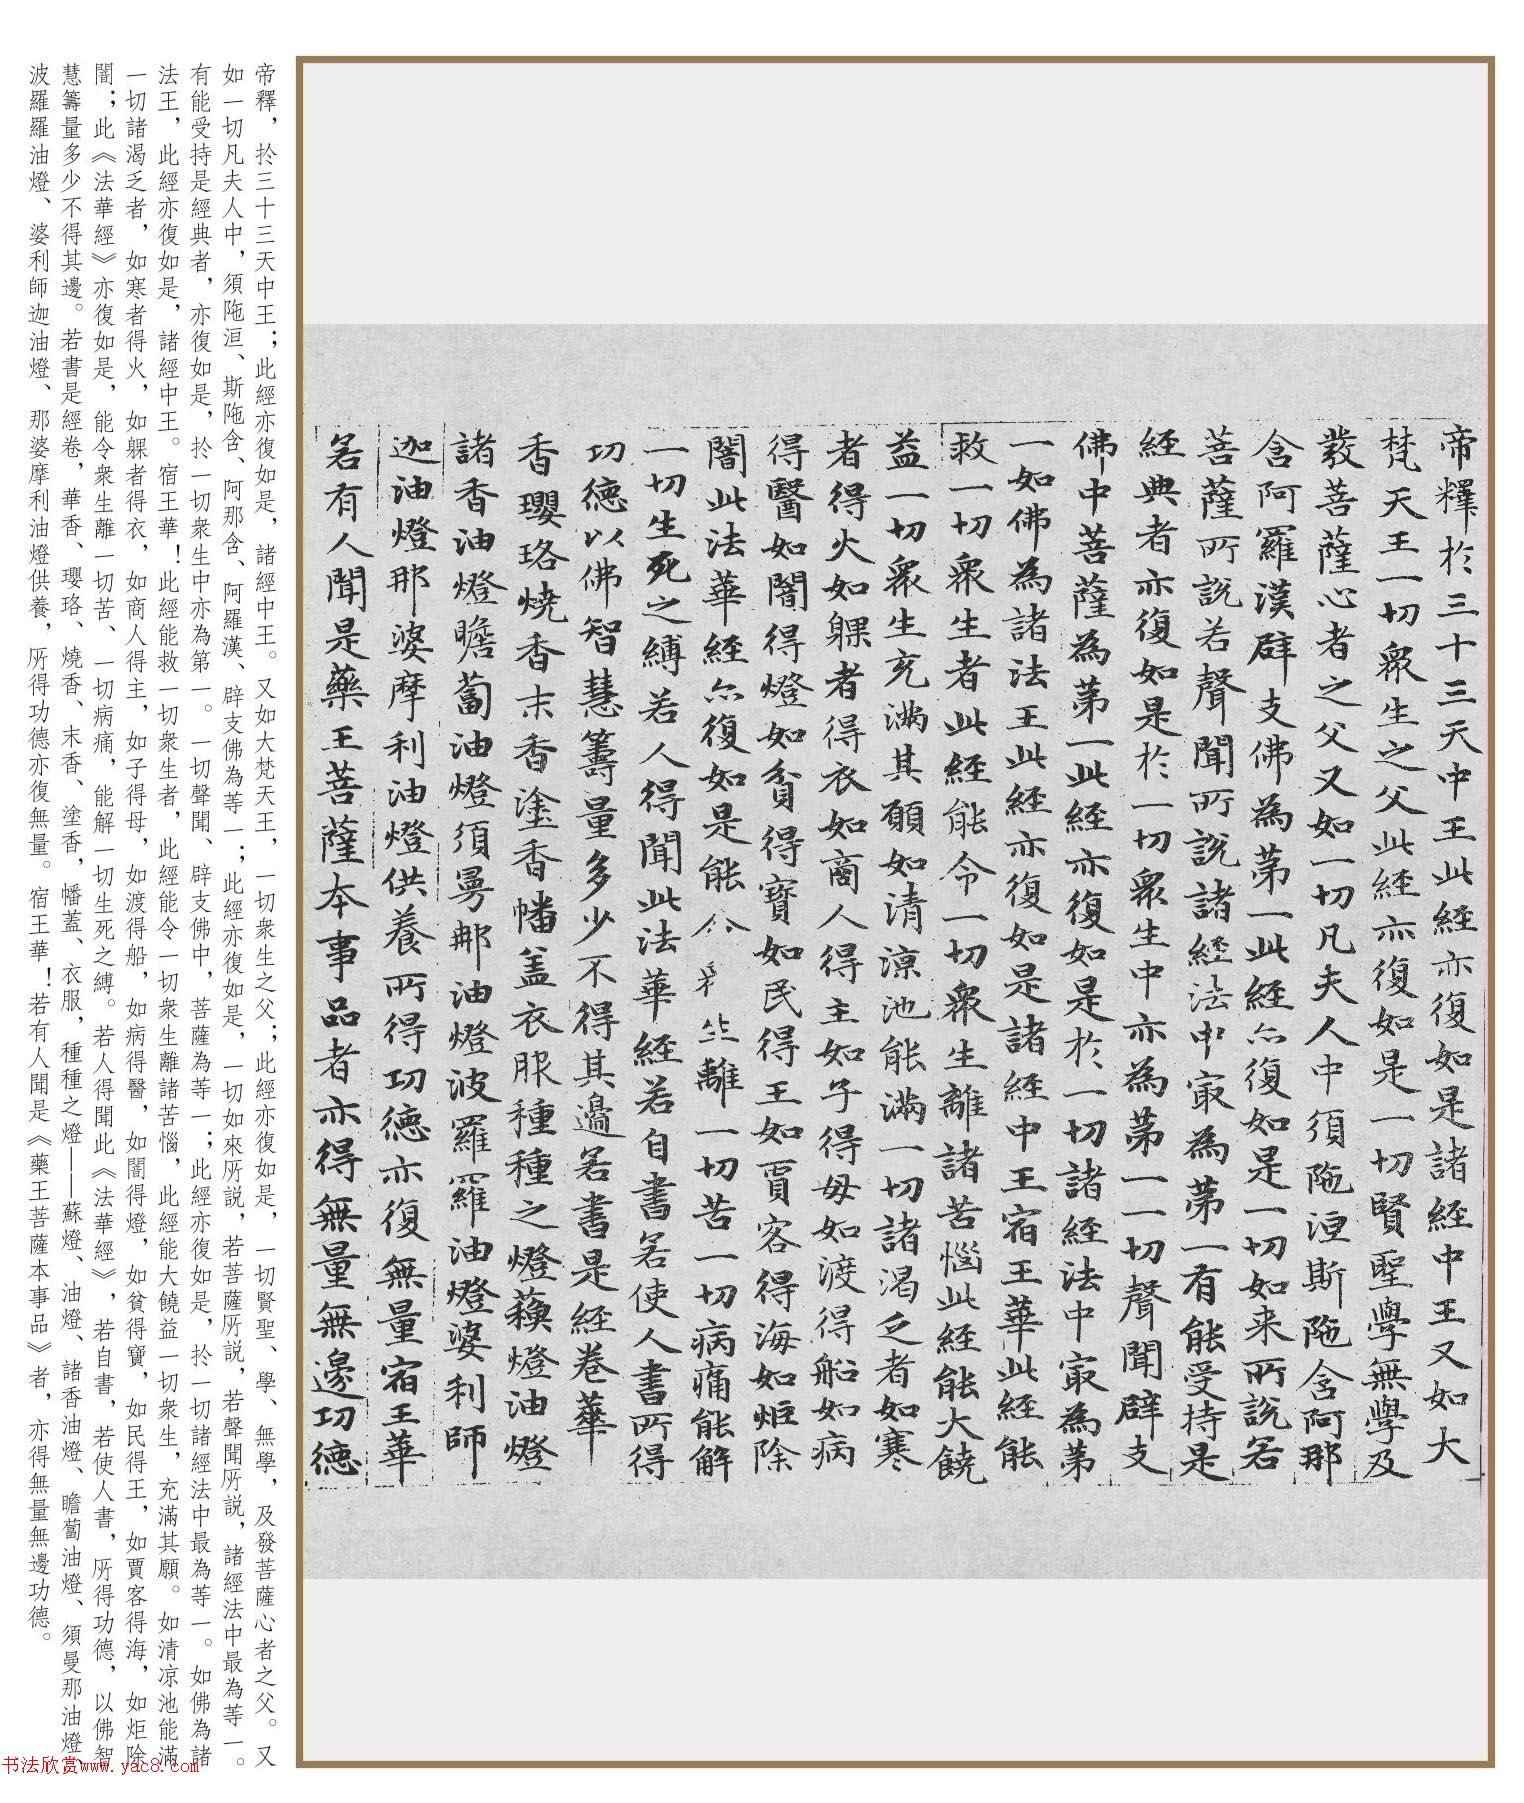 帝釋於三十三天中王此經亦復如是諸經中王又如大
梵天王一切衆生之父此經亦復如是一切賢聖學無學及
發菩薩心者之父又如一切凡夫人中須陁洹斯陁含阿那
含阿羅漢辟支佛為第一此經亦復如是一切如来所說若
菩薩所說若聲聞所說諸經法中最為第一有能受持是
經典者亦復如是於一切衆生中亦為第一一切聲聞辟支
佛中菩薩為第一此經亦復如是於一切諸經法中最為第
一如佛為諸法王此經亦復如是諸經中王宿王華此經能
救一切衆生者此經能令一切衆生離諸苦惱此經能大饒
益一切衆生充滿其願如清涼池能滿一切諸渴乏者如寒
者得火如躶者得衣如商人得主如子得母如渡得船如病
得醫如闇得燈如貧得寶如民得王如賈客得海如炬除
闇此法華經亦復如是能令衆生離一切苦一切病痛能解
一切生死之縛若人得聞此法華經若自書若使人書所得
功德以佛智慧籌量多少不得其邊若書是經卷華
香瓔珞燒香末香塗香幡盖衣服種種之燈蘓燈油燈
諸香油燈瞻蔔油燈須曼那油燈波羅羅油燈婆利師
迦油燈那婆摩利油燈供養所得功德亦復無量宿王華
若有人聞是藥王菩薩本事品者亦得無量無邊功德
帝釋，於三十三天中王；此經亦復如是，諸經中王。又如大梵天王，一切衆生之父；此經亦復如是，一切賢聖、學、無學，及發菩薩心者之父。又
如一切凡夫人中，須陁洹、斯陁含、阿那含、阿羅漢、辟支佛為等一；此經亦復如是，一切如來所説，若菩薩所説，若聲聞所説，諸經法中最為等一。
有能受持是經典者，亦復如是，於一切衆生中亦為第一。一切聲聞、辟支佛中，菩薩為等一；此經亦復如是，於一切諸經法中最為等一。如佛為諸
法王，此經亦復如是，諸經中王。宿王華！此經能救一切衆生者，此經能令一切衆生離諸苦惱，此經能大饒益一切衆生，充滿其願。如清涼池能滿
一切諸渴乏者，如寒者得火，如躶者得衣，如商人得主，如子得母，如渡得船，如病得醫，如闇得燈，如貧得寶，如民得王，如賈客得海，如炬除
闇；此《法華經》亦復如是，能令衆生離一切苦、一切病痛，能解一切生死之縛。若人得聞此《法華經》，若自書，若使人書，所得功德，以佛智
慧籌量多少不得其邊。若書是經卷，華香、瓔珞、燒香、末香、塗香，幡蓋、衣服，種種之燈——蘇燈、油燈、諸香油燈、瞻蔔油燈、須曼那油燈、
波羅羅油燈、婆利師迦油燈、那婆摩利油燈供養，所得功德亦復無量。宿王華！若有人聞是《藥王菩薩本事品》者，亦得無量無邊功德。
书法欣赏www.yac8.com